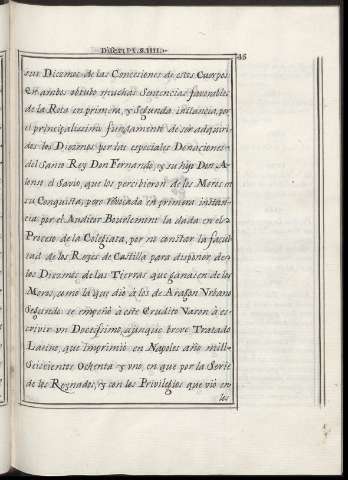 Disert. VI. S. IIII.
46
sus Diezmos de las Concesiones de estos Cuerpos
En ambos obtubo muchas Sentencias favorables
de la Rota en primera, y Segunda instancia, por
el principalissimo fundamento de ser adquiri-
dos los Diezmos por las especiales Donaciones
del Santo Rey Don Fernando, y su hijo Don A-
lonso el Savio, que los percibieron de los Moros en
su Conquista, pero rebocada en primera instan-
cia por el Auditor Bourlemont la dada en el
Proceso de la Colegiata, por no constar la facul-
tad de los Reyes de Castilla para disponer de
los Diezmos de las Tierras que ganasen de los
Moros, como la que dió à los de Aragon Urbano
Segundo se empeñó à este Erudito Varon à es-
crivir un Doctissimo, aunque breve Tratado
Latino, que imprimió en Napoles año mill
Seiscientos Ochenta y uno, en que por la Serie
de los Reynados, y con los Privilegios que vió en
los